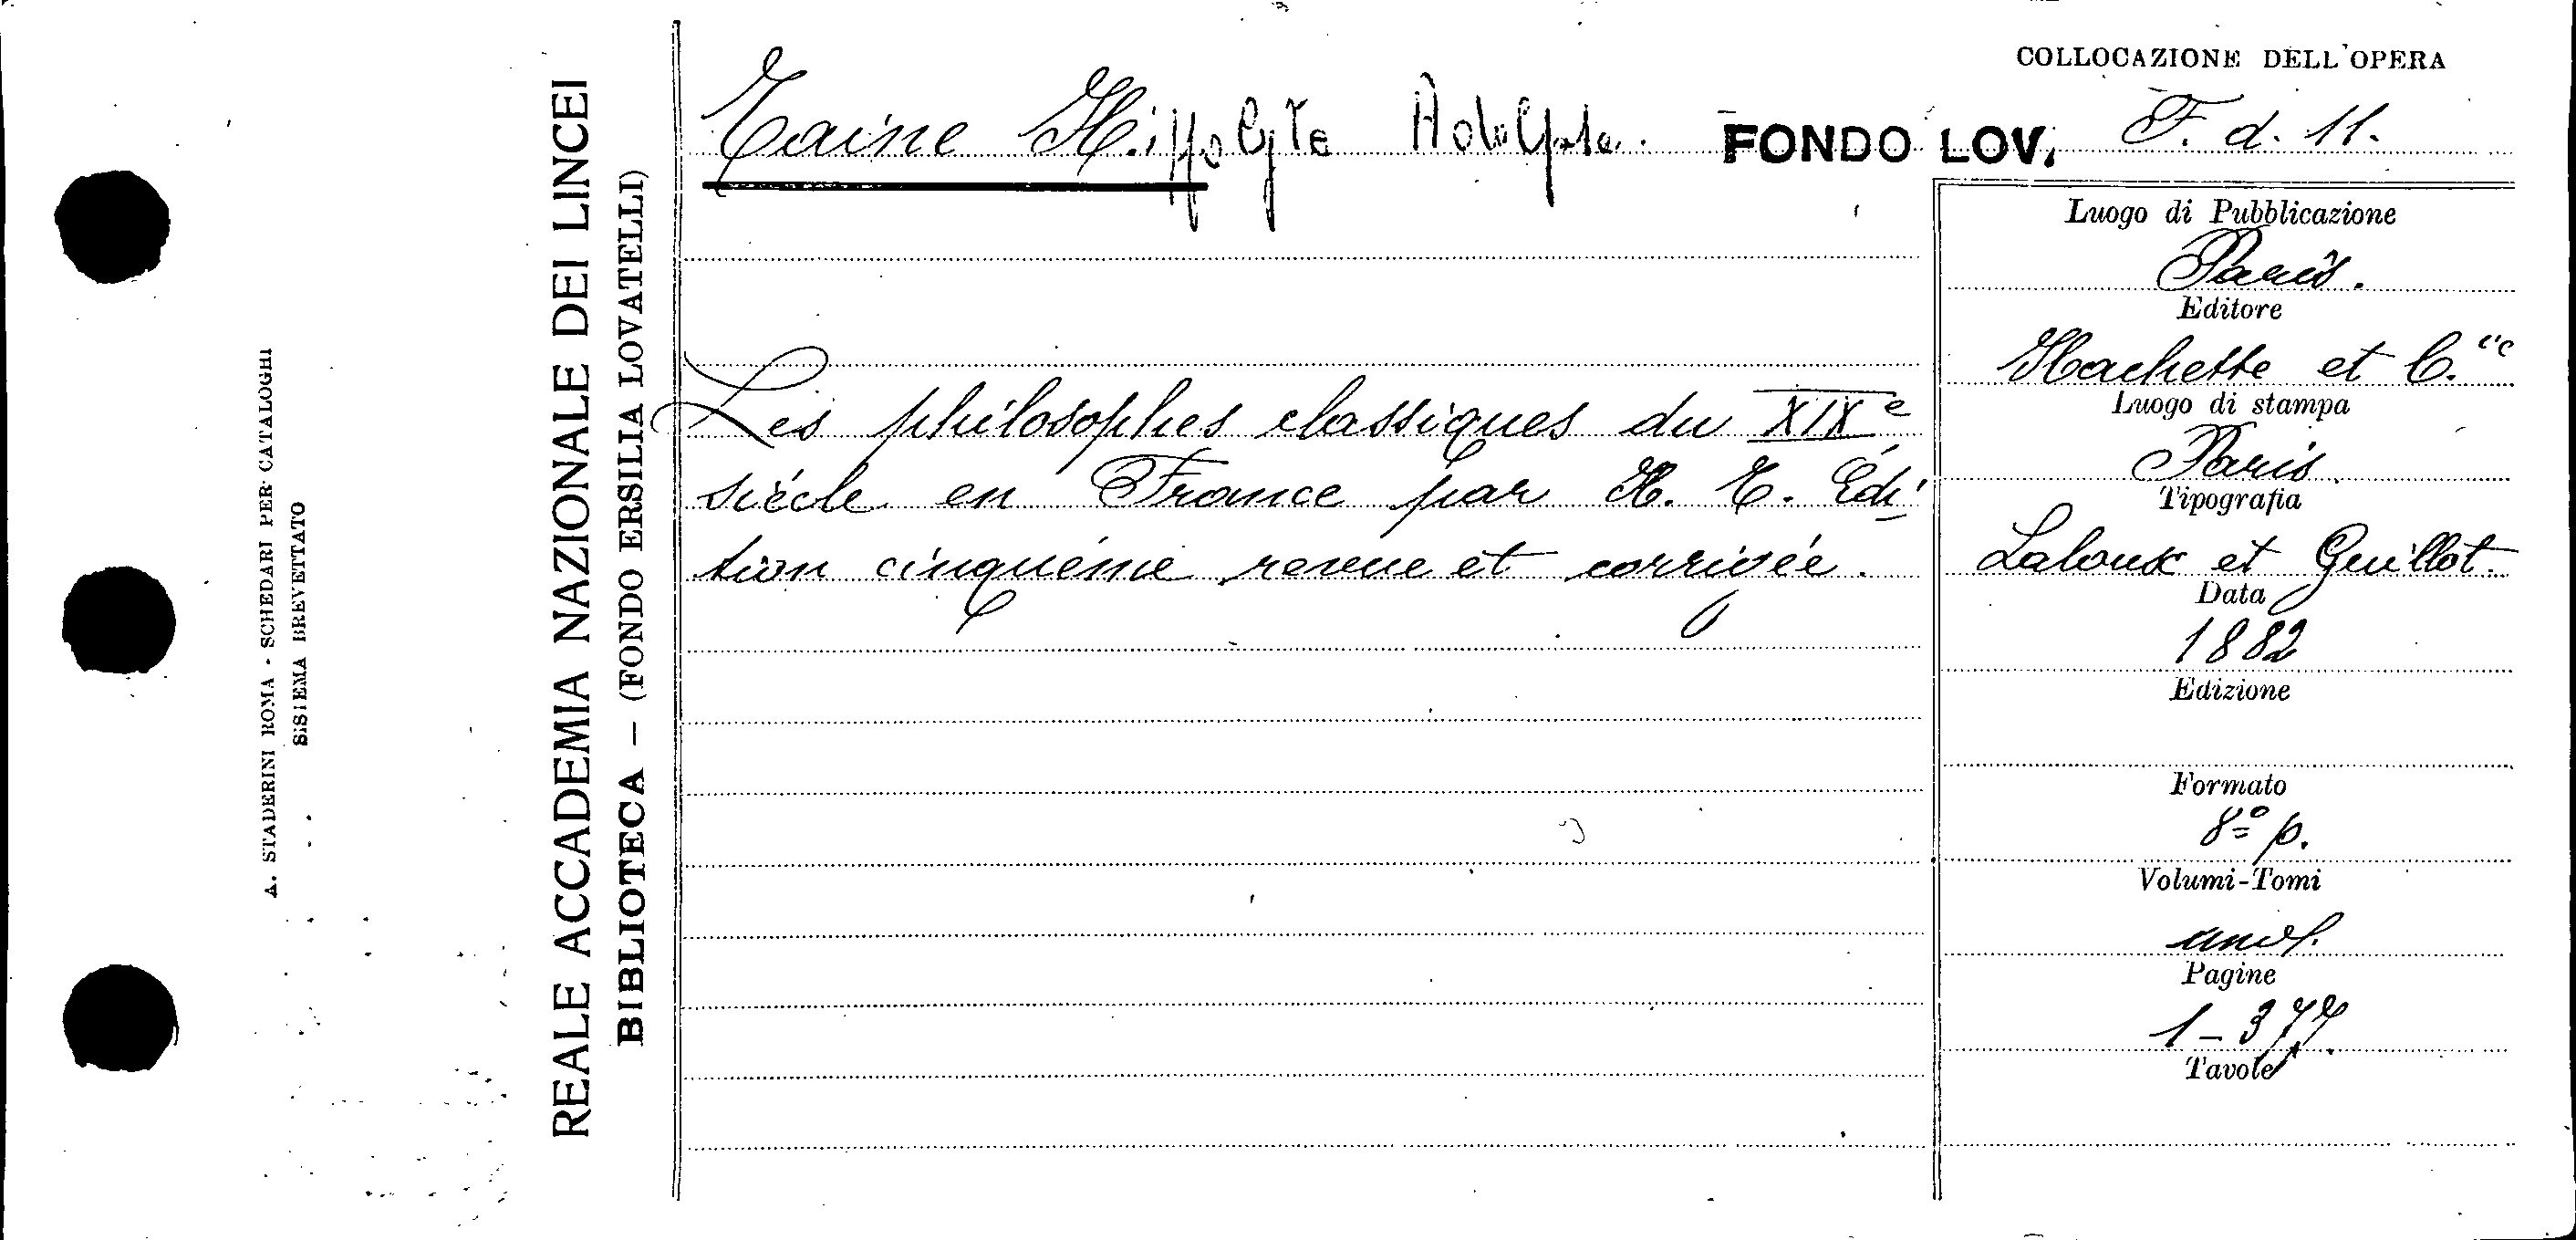 COLLOCAZIONE DELL'OPERA
Taine Hippolyte Adolphe. FONDO LOV. F. d. 11.
Les philosophes classiques du XIXe
siècle en France par H. T. Édi-
tion cinquème revue et corrigée.
Luogo di Pubblicazione
Paris.
Editore
Hachette et C.ie
Luogo di stampa
Paris
Tipografia
Laloux et Guillot
Data
1882
Edizione
Formato
8º p.
Volumi-Tomi
Pagine
1-377.
Tavole
REALE ACCADEMIA NAZIONALE DEI LINCEI
BIBLIOTECA — (FONDO ERSILIA LOVATELLI)
A. STADERINI ROMA - SCHEDARI PER CATALOGHI
SISTEMA BREVETTATO